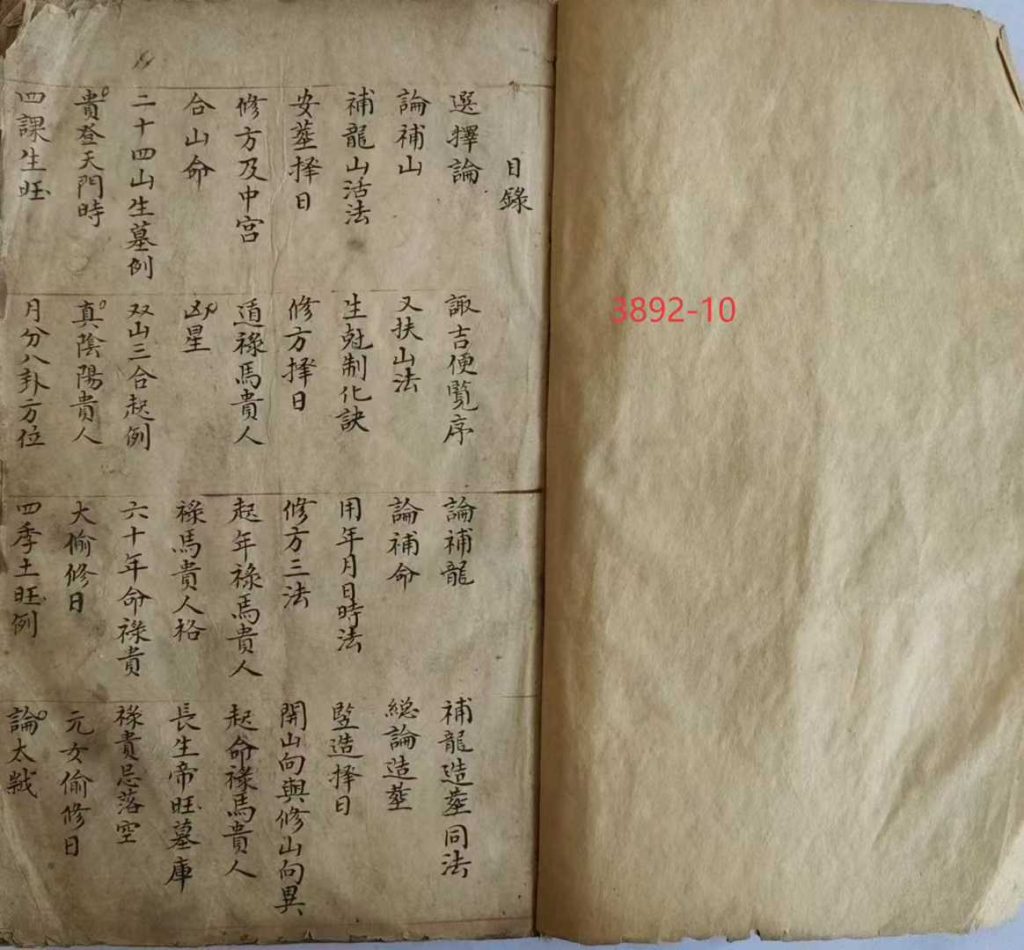 目錄
選擇論 諏吉便覧序 論補龍 補龍造塟同法
論補山 又扶山法 論補命 総論造塟
補龍山活法 生尅制化訣 用年月日時法 竪造择日
安塟择日 修方择日 修方三法 開山向與修山向異
修方及中宮 遁祿馬貴人 起年祿馬貴人 起命祿馬貴人
合山命 凶星 祿馬貴人格 長生帝旺墓庫
二十四山生墓例 双山三合起例 六十年命祿貴 祿貴忌落空
貴登天門時 真陰陽貴人 大偷修日 元女偷修日
四課生旺 月分八卦方位 四季土旺例 論太歲
3892-10